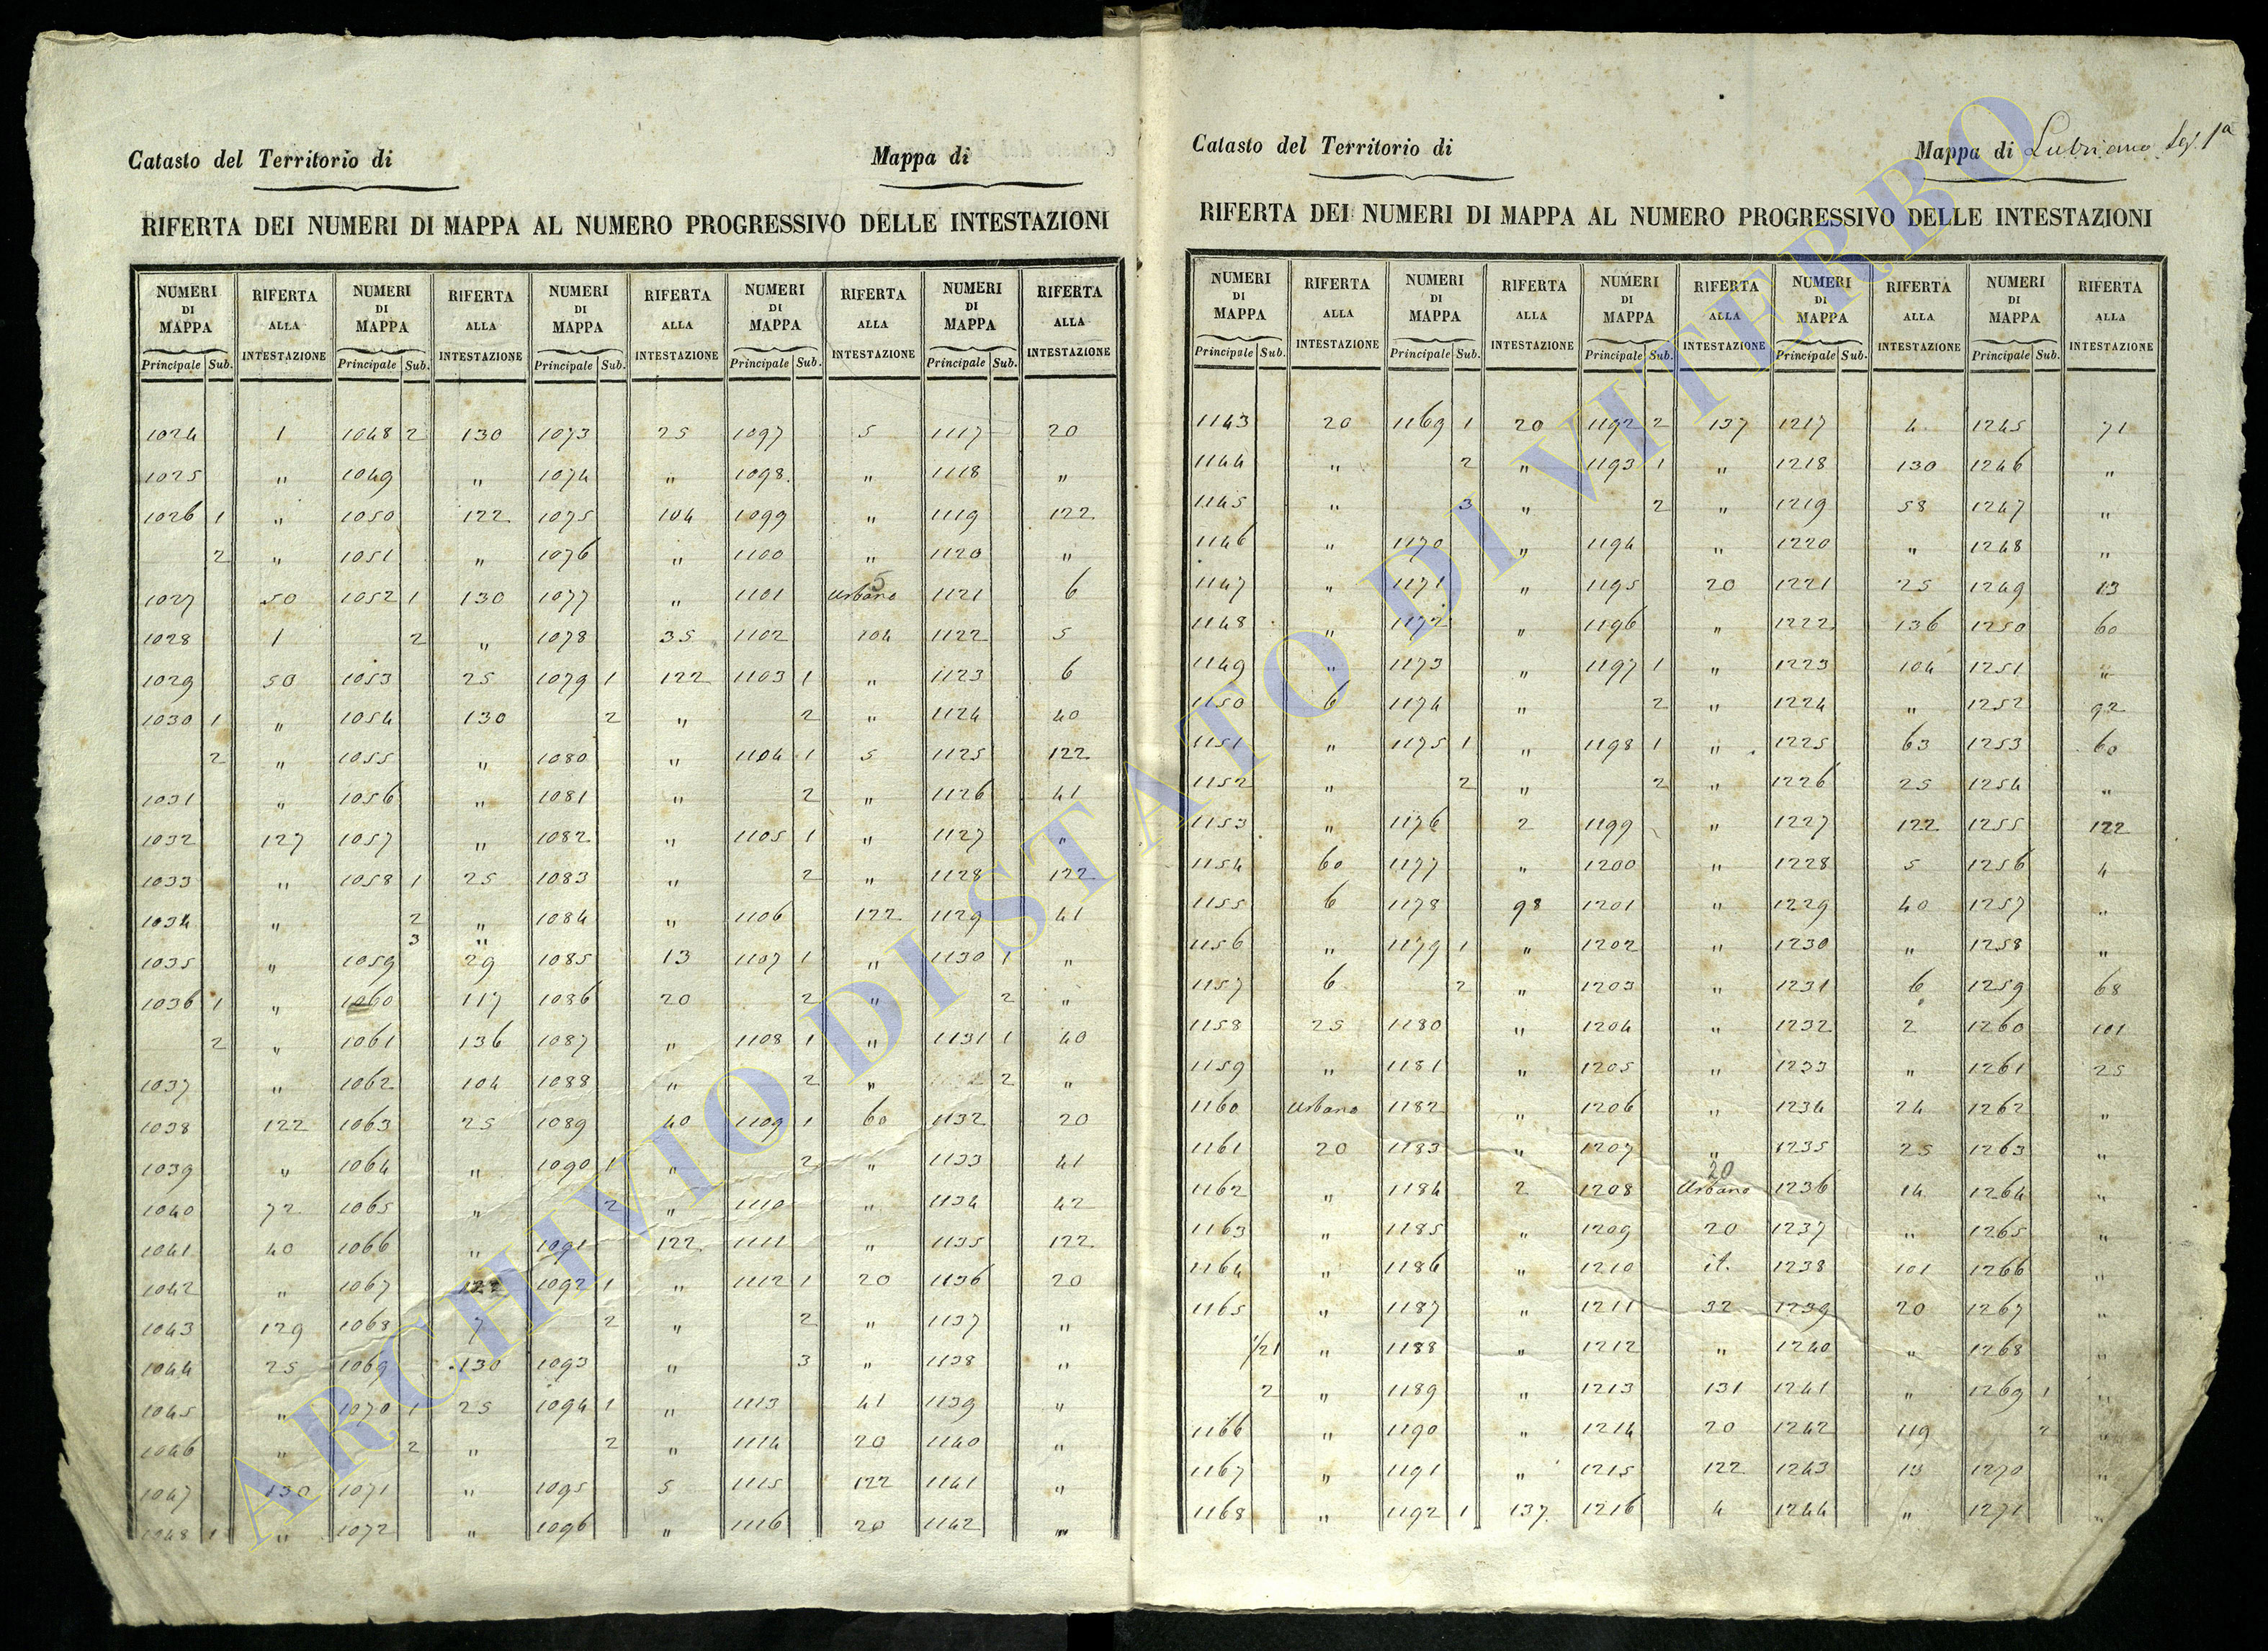 Catasto del Territorio di
Mappa di
RIFERTA DEI NUMERI DI MAPPA AL NUMERO PROGRESSIVO DELLE INTESTAZIONI
NUMERI DI MAPPA RIFERTA ALLA INTESTAZIONE NUMERI DI MAPPA RIFERTA ALLA INTESTAZIONE NUMERI DI MAPPA RIFERTA ALLA INTESTAZIONE NUMERI DI MAPPA RIFERTA ALLA INTESTAZIONE NUMERI DI MAPPA RIFERTA ALLA INTESTAZIONE
Principale Sub. Principale Sub. Principale Sub. Principale Sub. Principale Sub.
1024 1 1048 2 130 1073 25 1097 5 1117 20
1025 " 1049 " 1074 " 1098 " 1118 "
1026 1 " 1050 122 1075 104 1099 " 1119 122
2 " 1051 " 1076 " 1100 " 1120 "
1027 50 1052 1 130 1077 " 1101 Urbano 5 1121 6
1028 1 2 " 1078 35 1102 104 1122 5
1029 50 1053 25 1079 1 122 1103 1 " 1123 6
1030 1 " 1054 130 2 " 2 " 1124 40
2 " 1055 " 1080 " 1104 1 5 1125 122
1031 " 1056 " 1081 " 2 " 1126 41
1032 127 1057 " 1082 " 1105 1 " 1127 "
1033 " 1058 1 25 1083 " 2 " 1128 122
1034 " 2 " 1084 " 1106 122 1129 41
3 "
1035 " 1059 29 1085 13 1107 1 " 1130 1 "
1036 1 " 1060 117 1086 20 2 " 2 "
2 " 1061 136 1087 " 1108 1 " 1131 1 40
1037 " 1062 104 1088 " 2 " 2 "
1038 122 1063 25 1089 40 1109 1 60 1132 20
1039 " 1064 " 1090 1 " 2 " 1133 41
1040 72 1065 " 2 " 1110 " 1134 42
1041 40 1066 " 1091 122 1111 " 1135 122
1042 " 1067 122 1092 1 " 1112 1 20 1136 20
1043 129 1068 7 2 " 2 " 1137 "
1044 25 1069 130 1093 " 3 " 1138 "
1045 " 1070 1 25 1094 1 " 1113 41 1139 "
1046 " 2 " 2 " 1114 20 1140 "
1047 130 1071 " 1095 5 1115 122 1141 "
1048 1 " 1072 " 1096 " 1116 20 1142 "
Catasto del Territorio di
Mappa di Lubriano Sez. 1a
RIFERTA DEI NUMERI DI MAPPA AL NUMERO PROGRESSIVO DELLE INTESTAZIONI
NUMERI DI MAPPA RIFERTA ALLA INTESTAZIONE NUMERI DI MAPPA RIFERTA ALLA INTESTAZIONE NUMERI DI MAPPA RIFERTA ALLA INTESTAZIONE NUMERI DI MAPPA RIFERTA ALLA INTESTAZIONE NUMERI DI MAPPA RIFERTA ALLA INTESTAZIONE
Principale Sub. Principale Sub. Principale Sub. Principale Sub. Principale Sub.
1143 20 1169 1 20 1192 2 137 1217 4 1245 71
1144 " 2 " 1193 1 " 1218 130 1246 "
1145 " 3 " 2 " 1219 58 1247 "
1146 " 1170 " 1194 " 1220 " 1248 "
1147 " 1171 " 1195 20 1221 25 1249 13
1148 " 1172 " 1196 " 1222 136 1250 60
1149 " 1173 " 1197 1 " 1223 104 1251 "
1150 6 1174 " 2 " 1224 " 1252 92
1151 " 1175 1 " 1198 1 " 1225 63 1253 60
1152 " 2 " 2 " 1226 25 1254 "
1153 " 1176 2 1199 " 1227 122 1255 122
1154 60 1177 " 1200 " 1228 5 1256 4
1155 6 1178 98 1201 " 1229 40 1257 "
1156 " 1179 1 " 1202 " 1230 " 1258 "
1157 6 2 " 1203 " 1231 6 1259 68
1158 25 1180 " 1204 " 1232 2 1260 101
1159 " 1181 " 1205 " 1233 " 1261 25
1160 Urbano 1182 " 1206 " 1234 24 1262 "
1161 20 1183 " 1207 " 1235 25 1263 "
1162 " 1184 2 1208 Urbano 20 1236 14 1264 "
1163 " 1185 " 1209 20 1237 " 1265 "
1164 " 1186 " 1210 it. 1238 101 1266 "
1165 " 1187 " 1211 32 1239 20 1267 "
1/21 " 1188 " 1212 " 1240 " 1268 "
2 " 1189 " 1213 131 1241 " 1269 1 "
1166 " 1190 " 1214 20 1242 119 2 "
1167 " 1191 " 1215 122 1243 13 1270 "
1168 " 1192 1 137 1216 4 1244 " 1271 "
ARCHIVIO DI STATO DI VITERBO